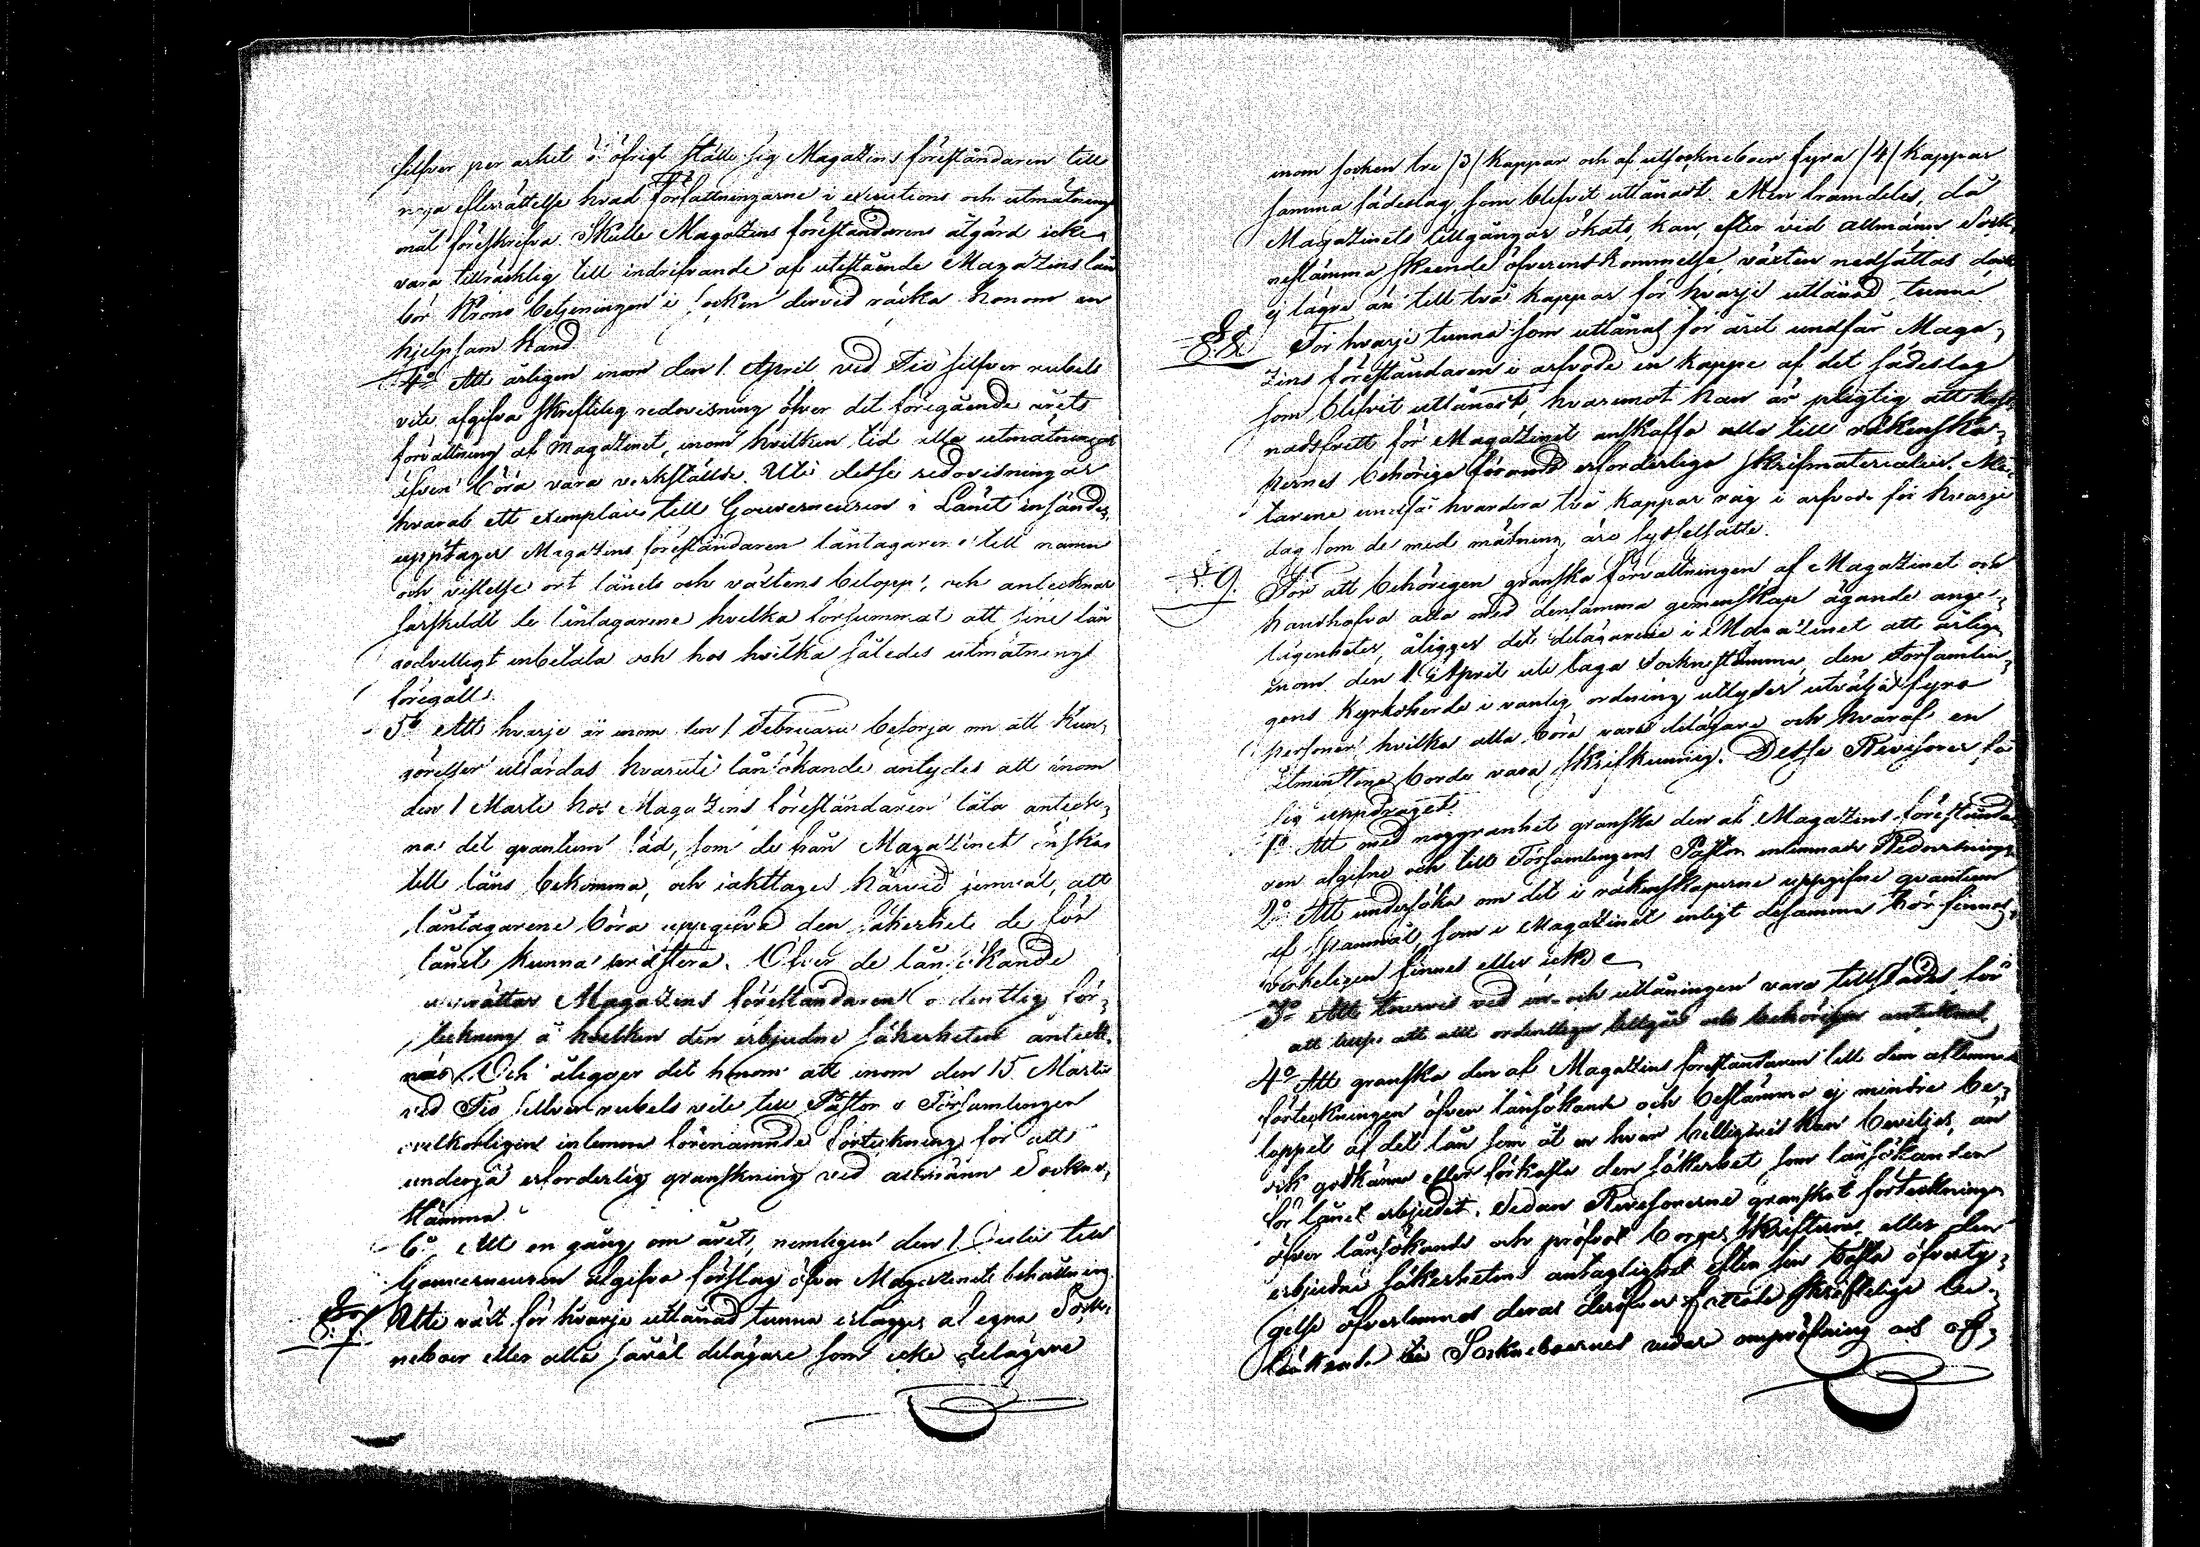 silfver per arket i öfrigt ställe sig Magazins föreståndaren till
noga efterrättelse hvad Författningarne i executions och utmätnings
mål föreskrifva. Skulle Magazins föreståndarens åtgärd icke
vara tillräcklig till indrifvande af utestående Magazins lån
bör Krono betjeningen i socken dervid räcka honom en
hjelpsam hand.
4o Att årligen inom den 1 April vid Tio silfver rubels
vite afgifva skriftelig redovisning öfver det föregående årets
förvaltning af Magazinet, inom hvilken tid alla utmätningar
äfven böra vara verkstälde. Uti desse redovisningar
hvaraf ett exemplair till Gouverneuren i Länet insändes,
upptager Magazins föreståndaren låntagarene till namn
och vistelse ort lånets och växtens belopp, och antecknar
särskildt de låntagarene hvilka försummat att sine lån
godvilligt inbetala och hos hvilka således utmätning
föregått.
5o Att hvarje år inom den 1 Februarii besörja om att Kun-
görelser utfärdas hvaruti lånsökande antydes att inom
den 1 Martii hos Magazins föreståndaren låta anteck-
na det quantum säd, som de från Magazinet önska
till låns bekomma, och iakttages härvid jemväl, att
låntagarene böra uppgifva den säkerhet de för
lånet kunna præstera. Öfver de lånsökande
upprättar Magazins föreståndaren ordentlig för-
teckning å hvilken den erbjudne säkerheten anteck-
nas. Och åligger det honom att inom den 15 Martii
vid Tio silfver rubels vite till Pastor i Församlingen
ovilkorligen inlemna förenämnde förteckning för att
undergå erforderlig granskning vid allmänn Sockne-
stämma.
6o Att en gång om året, nemligen den 1 Julii till
Gouverneuren afgifva förslag öfver Magazinets behållning.
§ 7. Uti växt för hvarje utlånad tunna erlägges af egna Sock-
neboer eller alla såväl delägare som icke delägare
inom socken tre /3/ kappar och af utsockneboer fyra /4/ kappar
samma sädeslag, som blifvit utlånadt. Men framdeles, då
Magazinets tillgångar ökats, kan, efter vid allmänn Sock-
nestämma skeende öfverenskommelse, växten nedsättas dock
ej lägre än till två kappar för hvarje utlånad tunna
§ 8. För hvarje tunna som utlånas för året undfår Maga-
zins föreståndaren i arfvode en kappe af det sädeslag
som blifvit utlånadt, hvaremot han är pligtig att kost-
nadsfritt för Magazinet anskaffa alla till räkenska-
pernes behöriga förande erforderliga skrifmaterialier. Mä-
tarene undfå hvardera två kappar råg i arfvode för hvarje
dag som de med mätning äro sysselsatte.
§ 9. För att behörigen granska förvaltningen af Magazinet och
handhafva alla med densamma gemenskap ägande ange-
lägenheter, åligger det delägarene i Magazinet att årligen
inom den 1 April uti laga Socknestämma, den Församlin-
gens Kyrkoherde i vanlig ordning utlyder utvälja fyra
personer hvilka alla böra vara delägare och hvaraf en
åtminstone borde vara skrifkunnig. Desse Revisorer få
sig uppdraget.
1o Att med noggranhet granska den af Magazins föreståndar
ren afgifne och till Församlingens Pastor inlemnade Redovisning
2o Att undersöka om det i räkenskaperne uppgifne quantum
af spannmål, som i Magazinet enligt desamma bör finnas,
verkeligen finnes eller icke
3o Att turvis vid in- och utlåningen vara tillstädes för
att tillse att allt ordentligen tillgår och behörigen antecknas
4o Att granska den af Magazins föreståndaren till dem aflemnade
förteckningen öfver lånsökande och bestämma ej mindre be-
loppet af det lån som åt en hvar billigtvis kan beviljas, än
och godkänna eller förkasta den säkerhet som lånsökanden
för lånet erbjudit. Sedan Revisorerne granskat förteckningen
öfver lånsökande och pröfvat borges skrifternes eller den
erbjudne säkerhetens antaglighet efter sin bästa öfverty-
gelse öfverlemnas deras deröfver fattade skriftelige be-
tänkande till Sockneboernes vidare ompröfning och af-